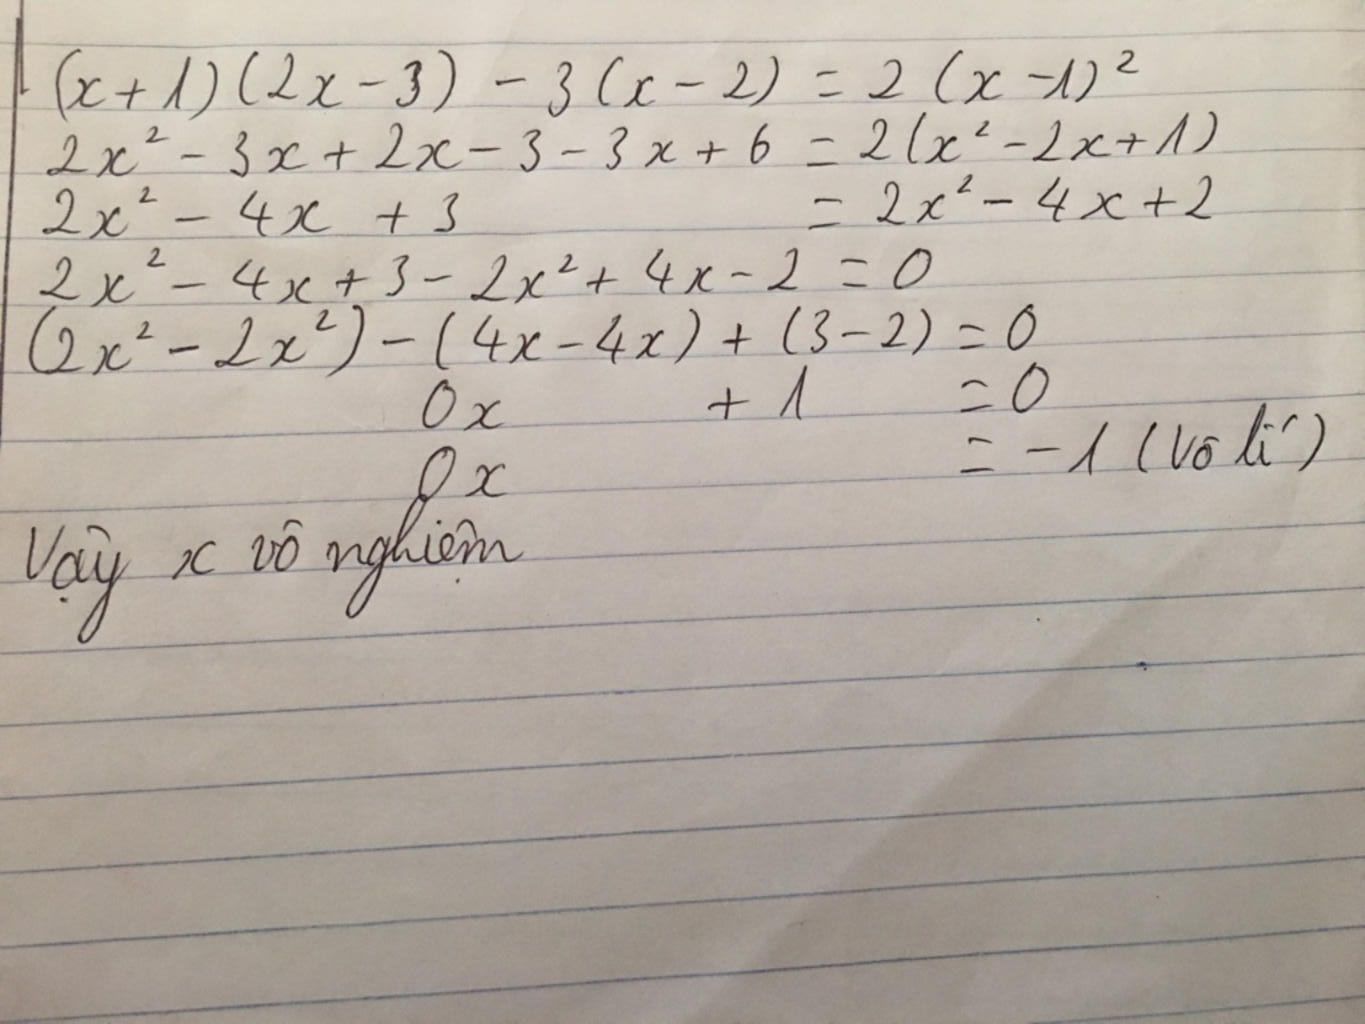 (x+1)(2x-3) - 3(x-2) = 2(x-1)²
2x² - 3x + 2x - 3 - 3x + 6 = 2(x² - 2x + 1)
2x² - 4x + 3 = 2x² - 4x + 2
2x² - 4x + 3 - 2x² + 4x - 2 = 0
(2x² - 2x²) - (4x - 4x) + (3 - 2) = 0
0x + 1 = 0
0x = -1 (vô lí)
Vậy x vô nghiệm